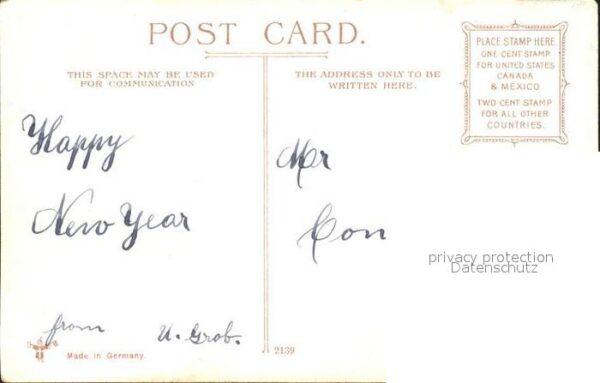 POST CARD.
THIS SPACE MAY BE USED
FOR COMMUNICATION
THE ADDRESS ONLY TO BE
WRITTEN HERE.
PLACE STAMP HERE
ONE CENT STAMP
FOR UNITED STATES
CANADA
& MEXICO
TWO CENT STAMP
FOR ALL OTHER
COUNTRIES.
Happy
New Year
from U. Grob.
Mr
Con
privacy protection
Datenschutz
Made in Germany.
2139